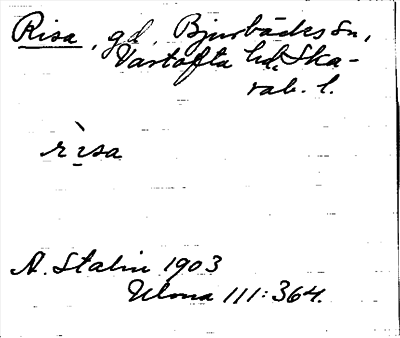 Risa, gd, Bjurbäcks sn,
Vartofta hd, Ska-
rab. l.
rìsa
A. Stalin 1903
Ulma 111:364.